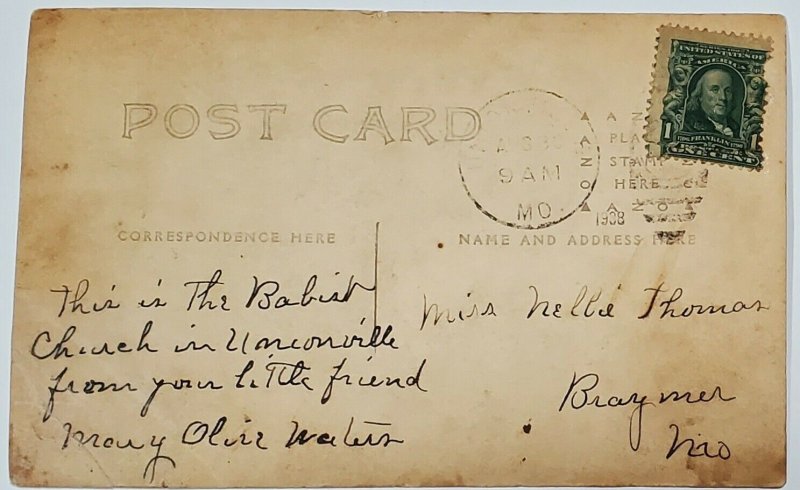 POST CARD
9 AM
MO.
1908
PLACE
STAMP
HERE
UNITED STATES OF
AMERICA
1 FRANKLIN 1
ONE CENT
CORRESPONDENCE HERE
NAME AND ADDRESS HERE
This is The Babist
Church in Unionville
from your little friend
Mary Olive Waters
Miss Nellie Thomas
Braymer
Mo